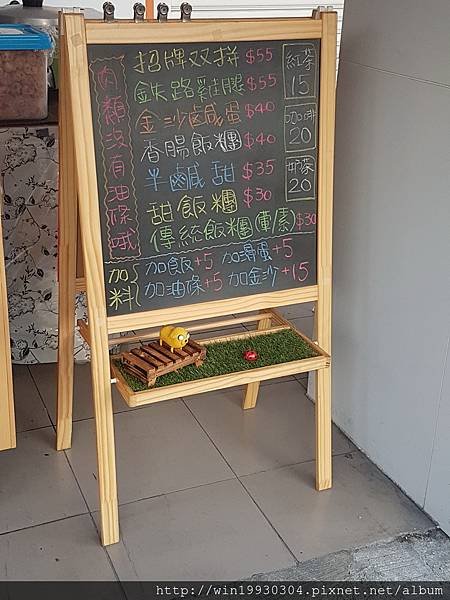 招牌双拼 $55
鉄路雞腿 $55
金沙鹹蛋 $40
香腸飯糰 $40
半鹹甜 $35
甜飯糰 $30
傳統飯糰(葷素) $30
肉類沒有油條哦
紅茶
15
咖啡
20
奶茶
20
加料
加飯+5 加滑蛋+5
加油條+5 加金沙+15
http://win19930304.pixnet.net/album